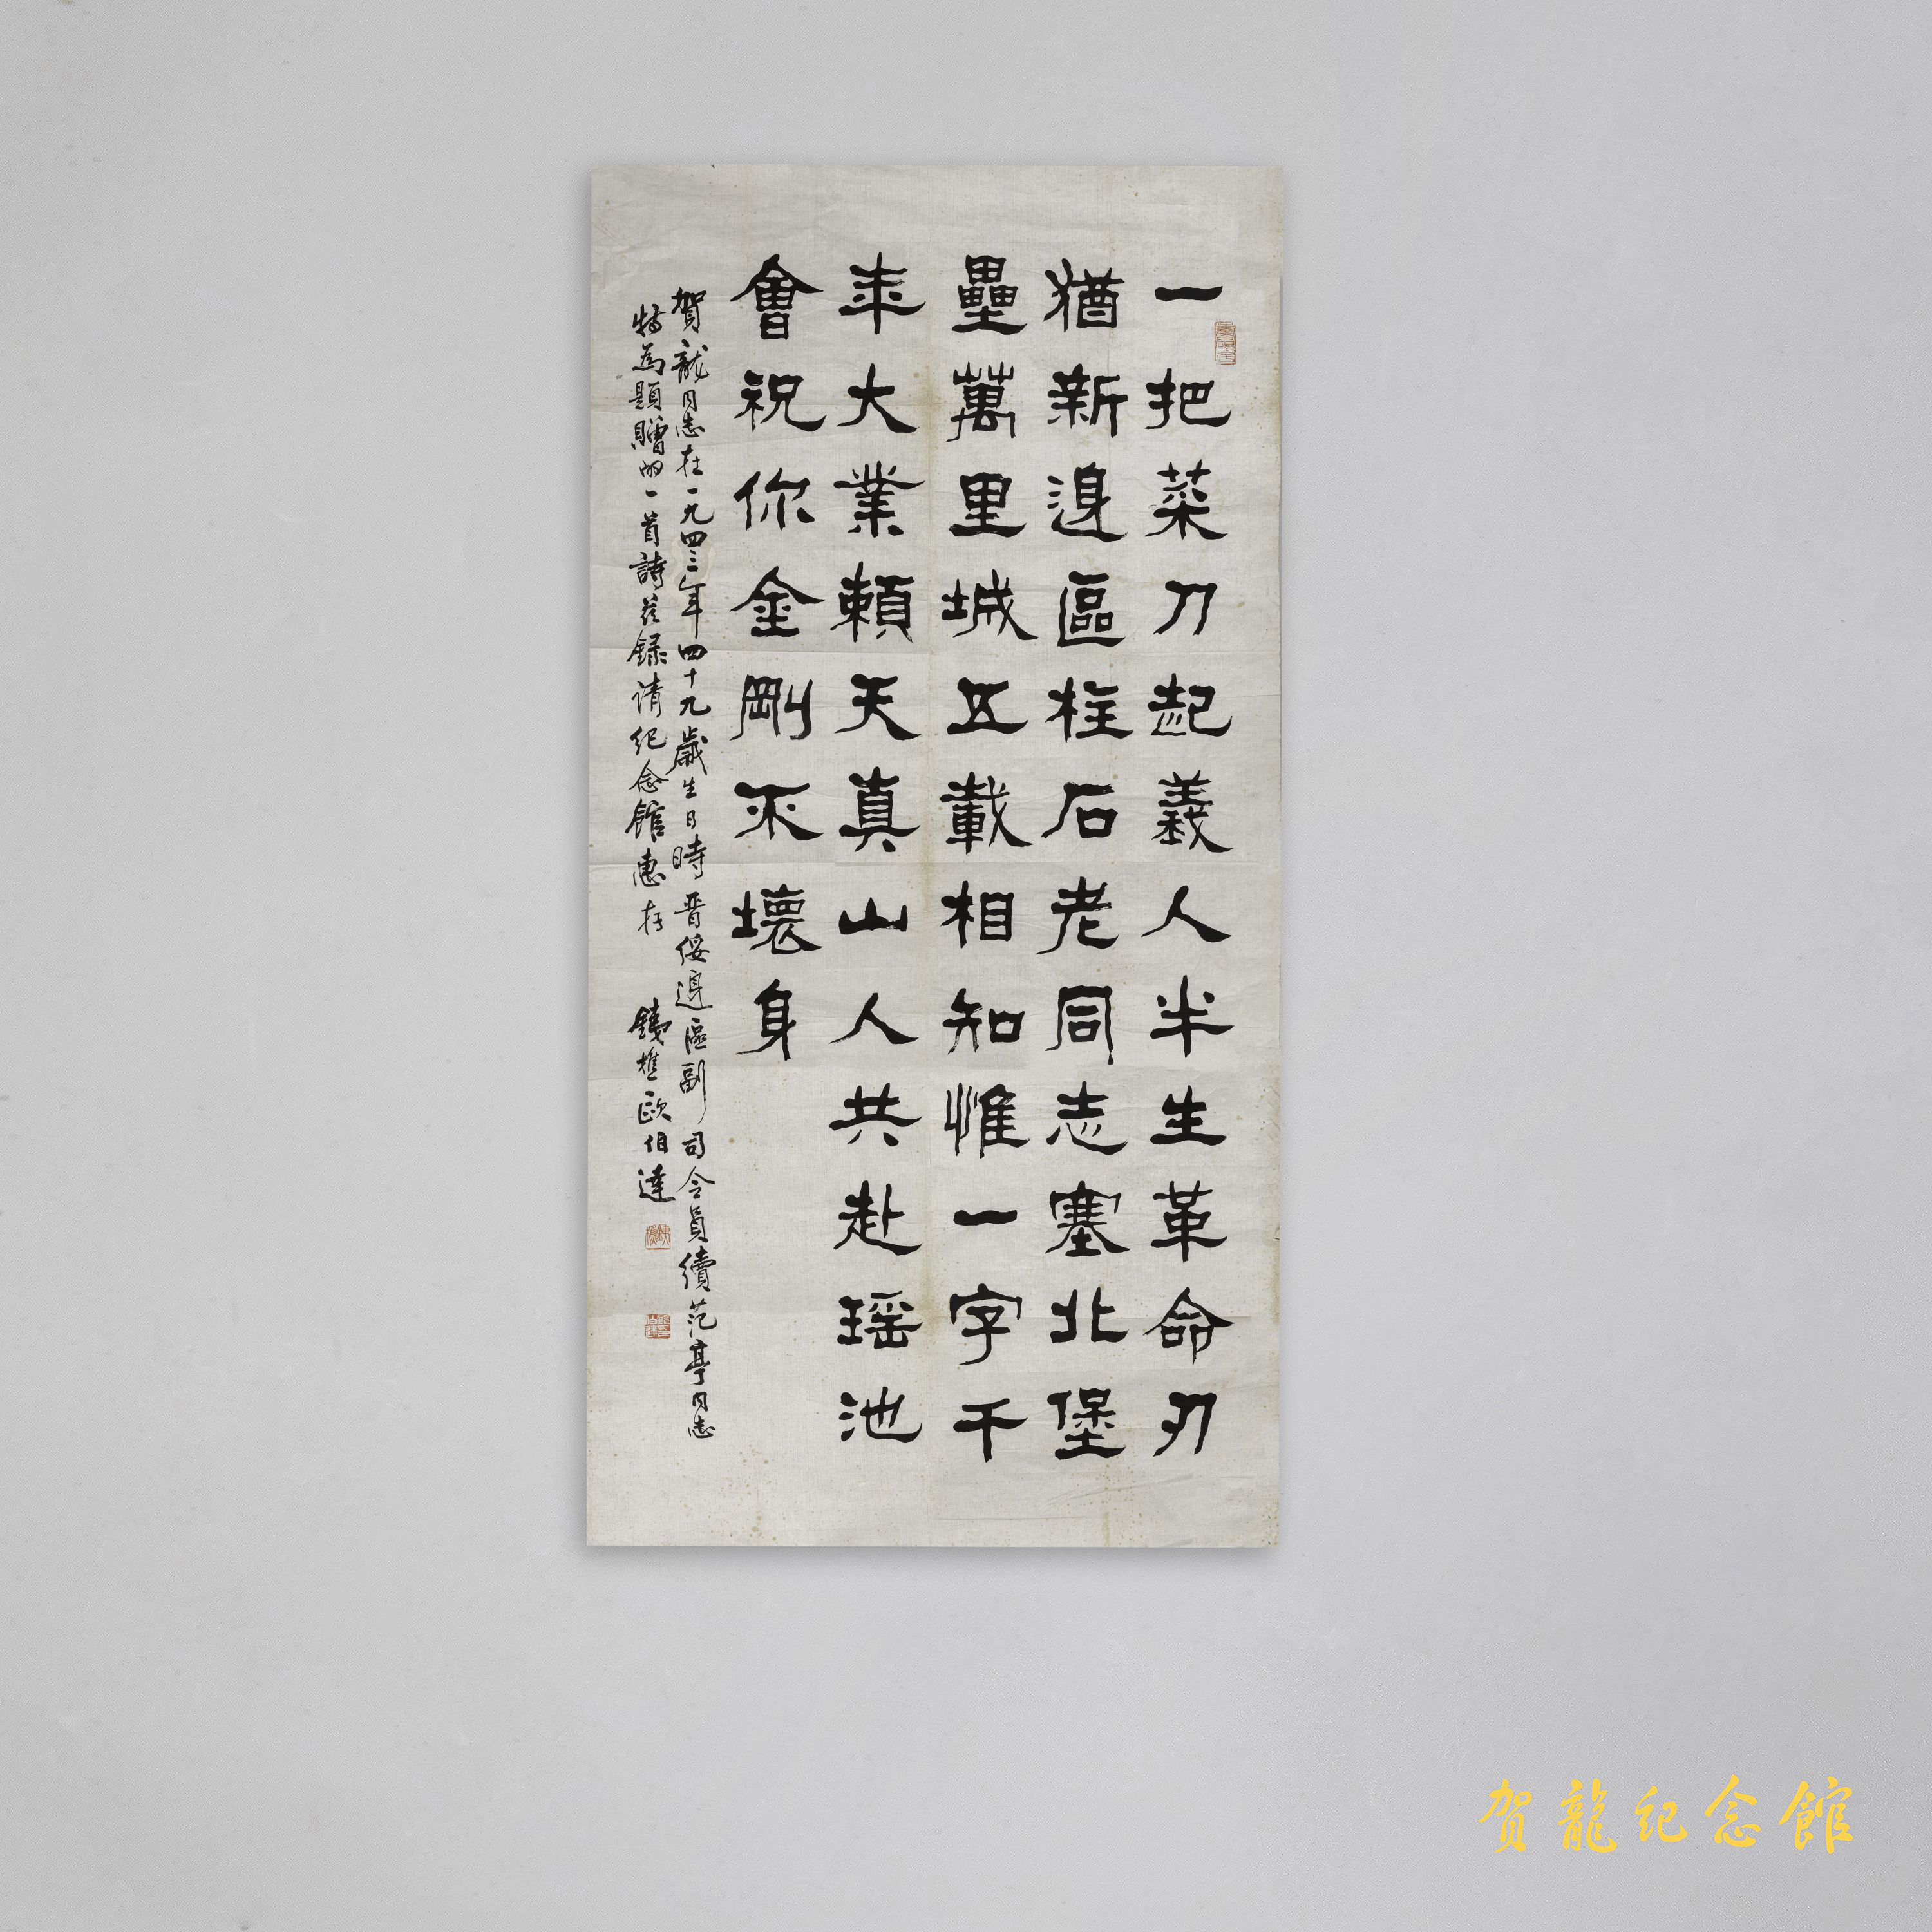 一把菜刀起義人半生革命刃
猶新邊區柱石老同志塞北堡
壘萬里城五載相知惟一字千
年大業賴天真山人共赴瑶池
會祝你金剛不壞身
賀龍同志在一九四三年四十九歲生日時晋綏邊區副司令員續范亭同志
特為題贈的一首詩茲録请纪念館惠存 鐵樵歐伯達
贺龍纪念館